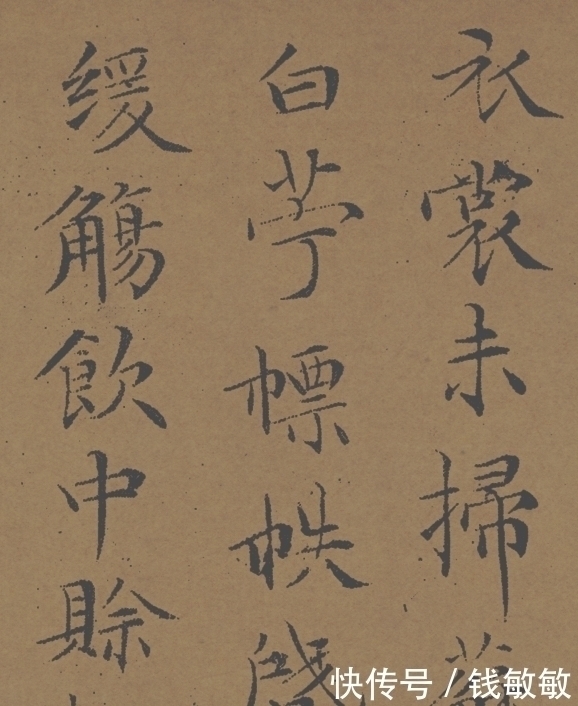 衣裳未掃
白苧幖帙
緩觴飲中賖
快传号 / 钱敏敏